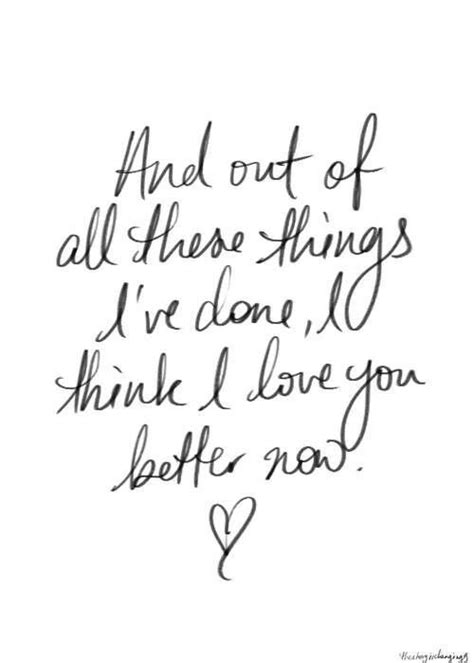 And out of
all these things
I've done, I
think I love you
better now.